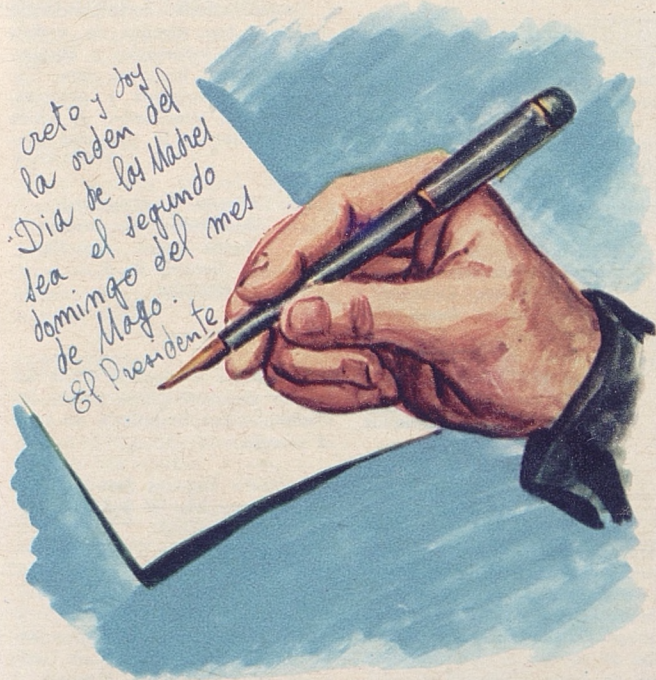 creto y doy
la orden del
"Dia de las Madres
sea el segundo
domingo del mes
de Mayo.
El Presidente